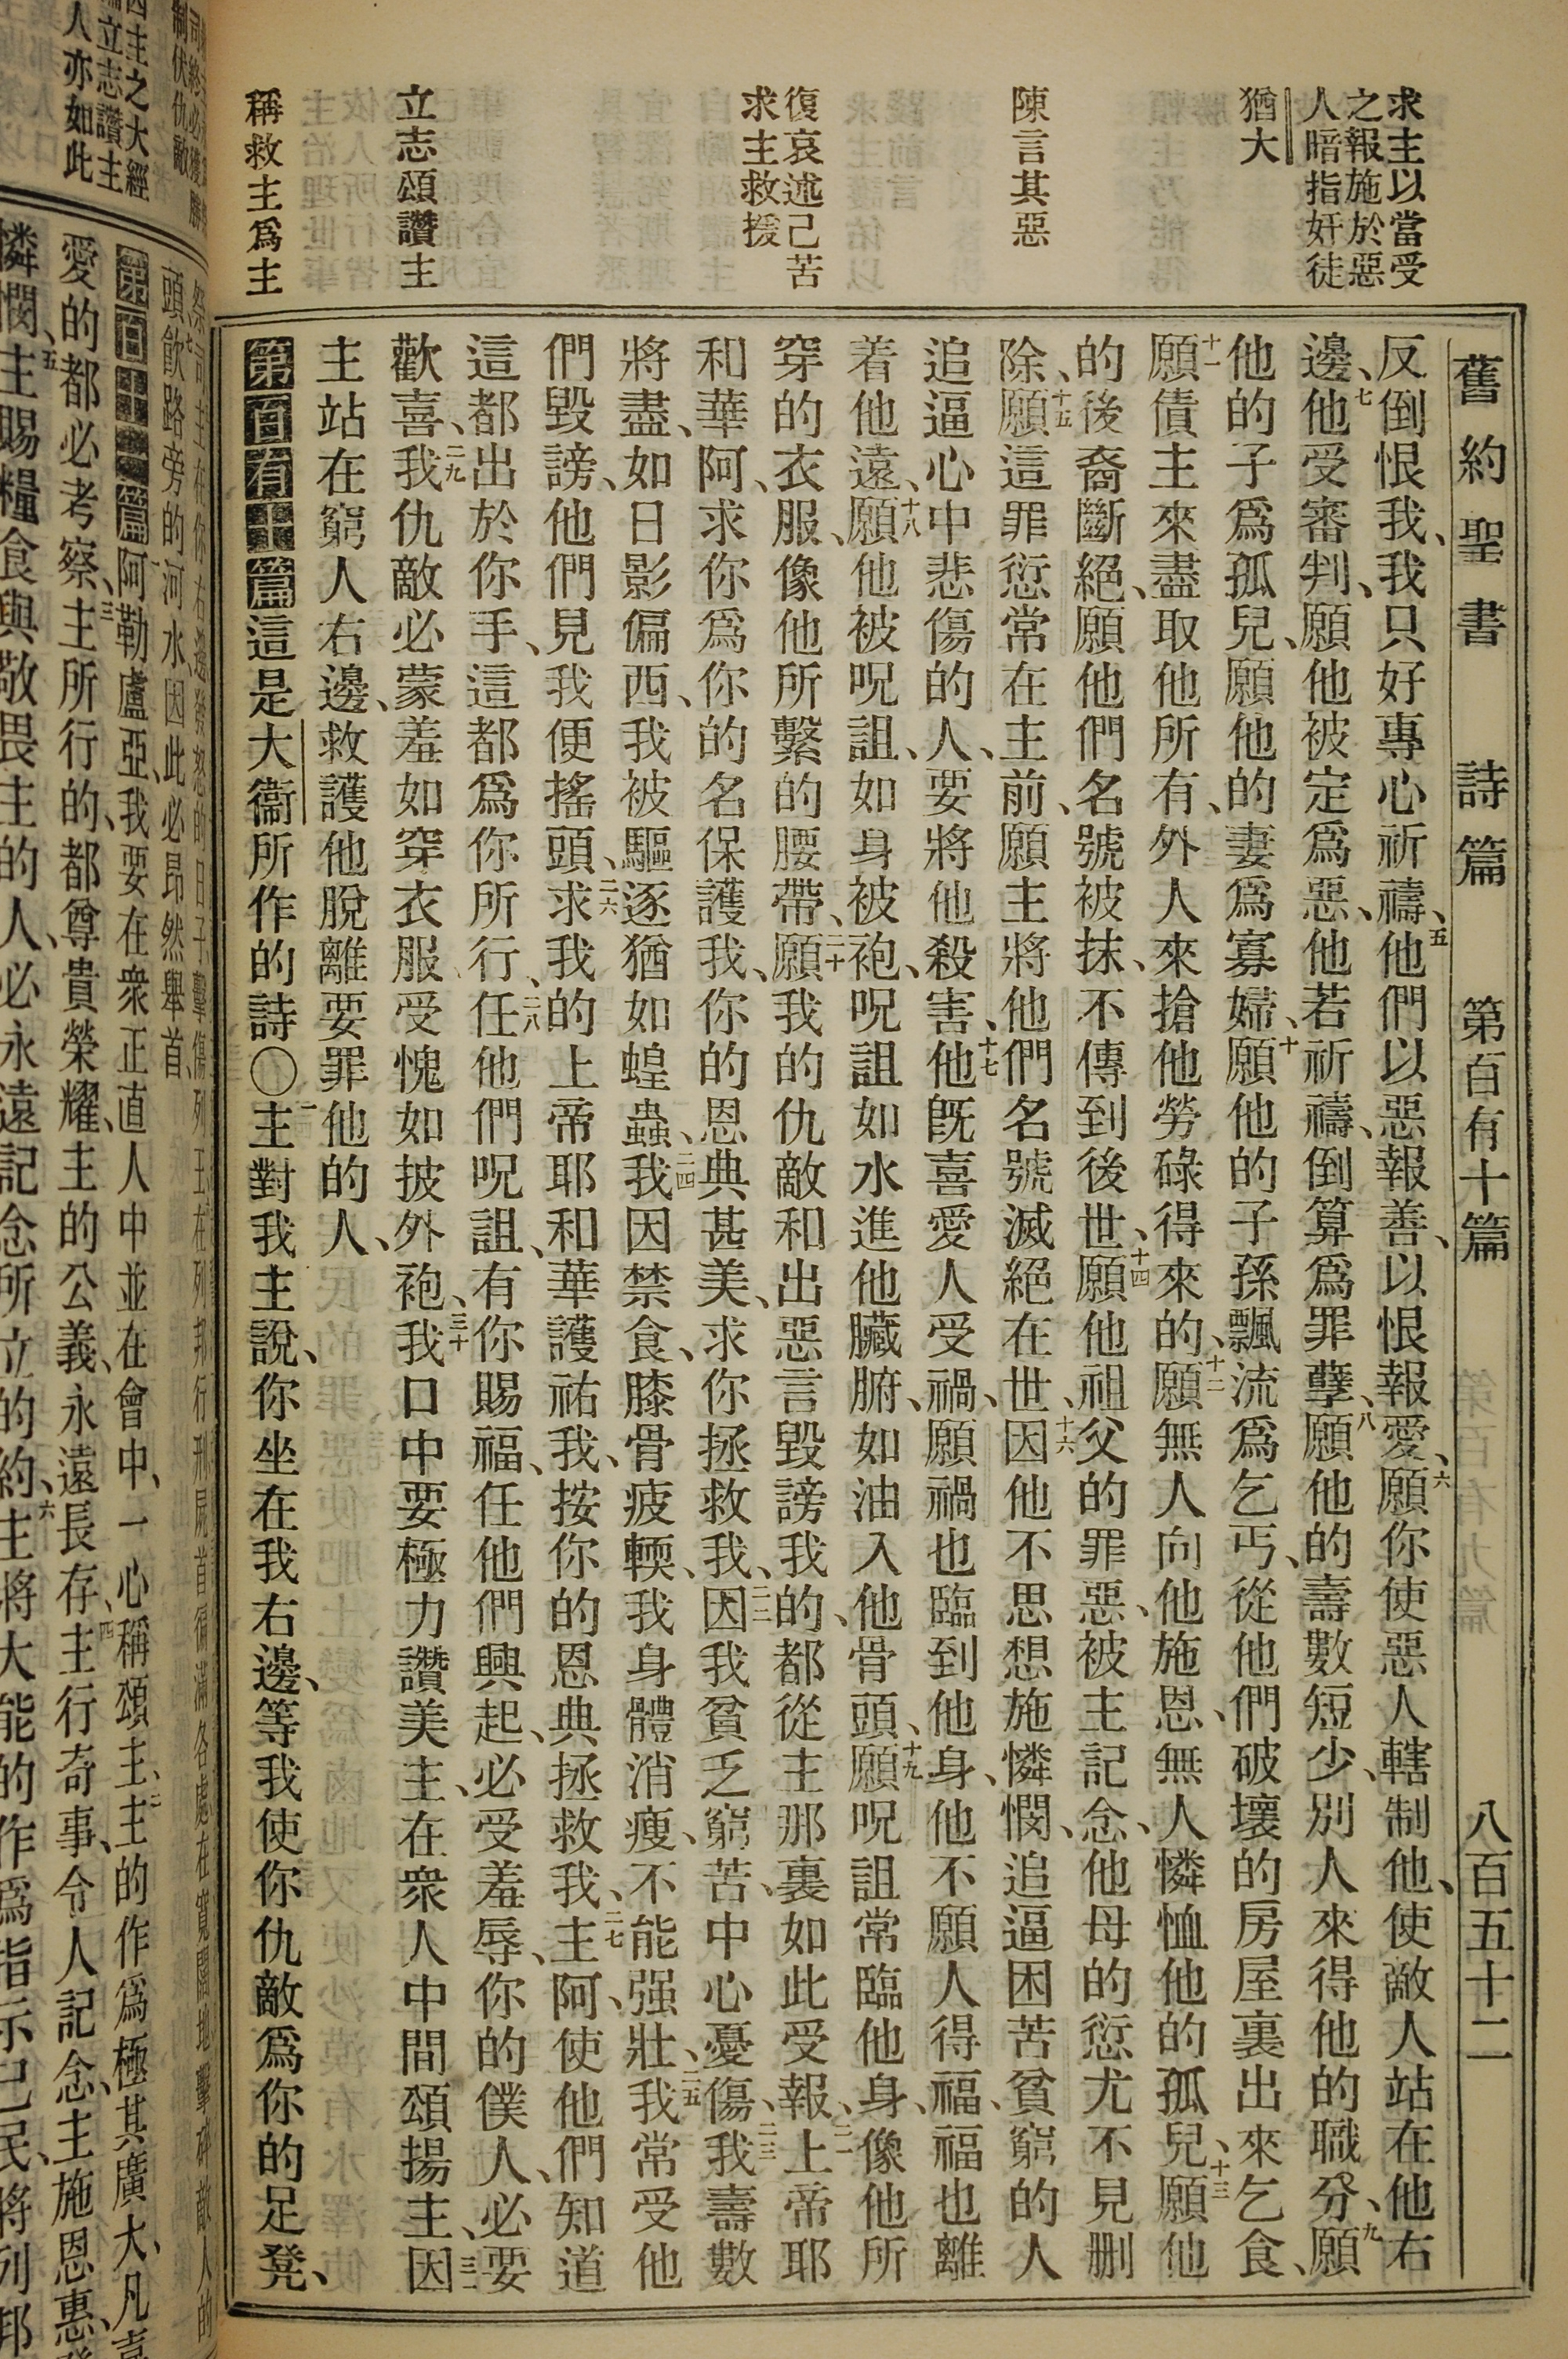 舊約聖書 詩篇 第百有十篇 八百五十二
求主以當受
之報施於惡
人暗指奸徒
猶大
陳言其惡
復哀述己苦
求主救援
立志頌讚主
稱救主爲主
反倒恨我、我只好專心祈禱、五他們以惡報善、以恨報愛、六願你使惡人轄制他、使敵人站在他右
邊、七他受審判、願他被定爲惡、他若祈禱、倒算爲罪孽、八願他的壽數短少、別人來得他的職分、九願
他的子爲孤兒、願他的妻爲寡婦、十願他的子孫飄流爲乞丐、從他們破壞的房屋裏出來乞食、
十一願債主來盡取他所有、外人來搶他勞碌得來的、十二願無人向他施恩、無人憐恤他的孤兒、十三願他
的後裔斷絕、願他們名號被抹、不傳到後世、十四願他祖父的罪惡、被主記念、他母的愆尤不見刪
除、十五願這罪愆常在主前、願主將他們名號滅絕在世、十六因他不思想施憐憫、追逼困苦貧窮的人
追逼心中悲傷的人、要將他殺害、十七他旣喜愛人受禍、願禍也臨到他身、他不願人得福、福也離
着他遠、十八願他被呪詛、如身被袍、呪詛如水進他臟腑、如油入他骨頭、十九願呪詛常臨他身、像他所
穿的衣服、像他所繫的腰帶、二十願我的仇敵和出惡言毀謗我的、都從主那裏如此受報、二一上帝耶
和華阿、求你爲你的名保護我、你的恩典甚美、求你拯救我、二二因我貧乏窮苦、中心憂傷、二三我壽數
將盡、如日影偏西、我被驅逐猶如蝗蟲、二四我因禁食、膝骨疲輭、我身體消瘦、不能强壯、二五我常受他
們毀謗、他們見我便搖頭、二六求我的上帝耶和華護祐我、按你的恩典拯救我、二七主阿、使他們知道
這都出於你手、這都爲你所行、二八任他們呪詛、有你賜福、任他們興起、必受羞辱、你的僕人、必要
歡喜、二九我仇敵必蒙羞如穿衣服、受愧如披外袍、三十我口中要極力讚美主、在衆人中間頌揚主、三一因
主站在窮人右邊、救護他脫離要罪他的人、
第百有十篇這是大衞所作的詩〇一主對我主說、你坐在我右邊、等我使你仇敵爲你的足凳、
頭、七飲路旁的河水、因此必昂然舉首、
阿勒盧亞、我要在衆正直人中並在會中、一心稱頌主、二主的作爲極其廣大、凡喜
愛的都必考察、三主所行的、都尊貴榮耀、主的公義、永遠長存、四主行奇事、令人記念、主施恩惠、
憐憫、五主賜糧食與敬畏主的人、必永遠記念所立的約、六主將大能的作爲指示己民、將列邦